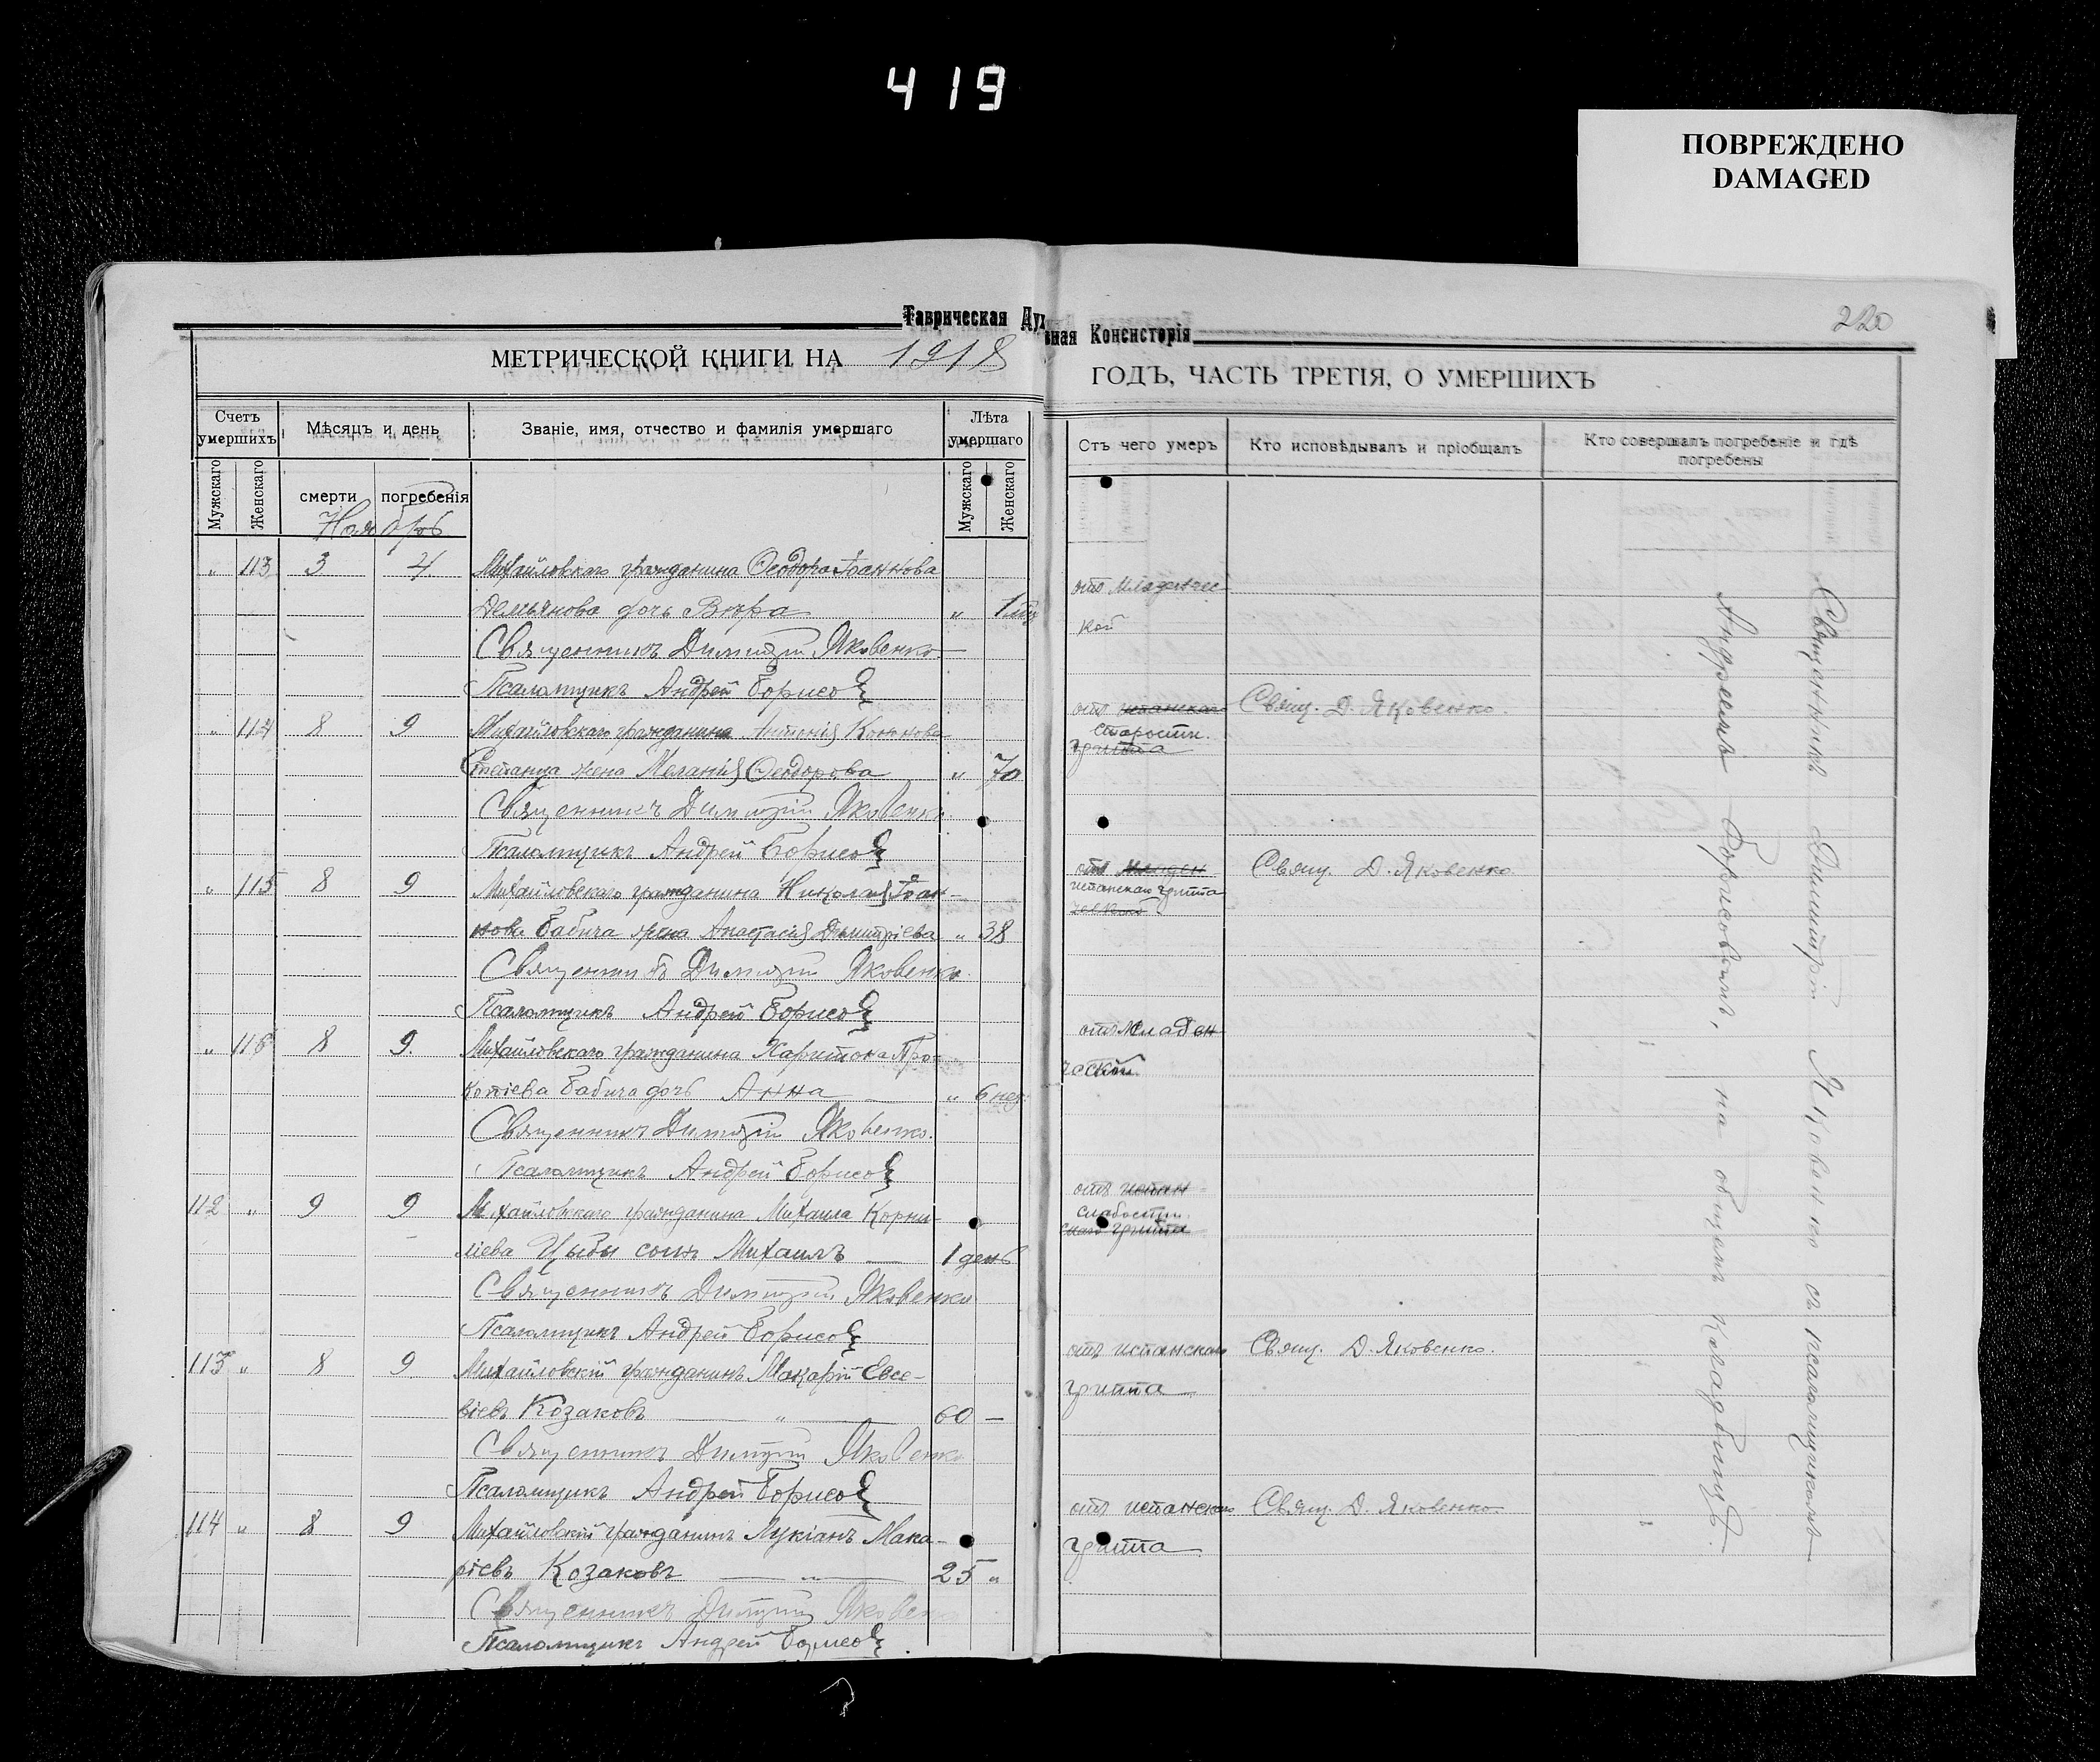 419
ПОВРЕЖДЕНО
DAMAGED
220
Таврическая Духовная Консисторія
МЕТРИЧЕСКОЙ КНИГИ НА 1918
ГОДЪ, ЧАСТЬ ТРЕТІЯ, О УМЕРШИХЪ
Счетъ умершихъ
Мѣсяцъ и день
Званіе, имя, отчество и фамилія умершаго
Лѣта умершаго
Отъ чего умеръ
Кто исповѣдывалъ и пріобщалъ
Кто совершалъ погребеніе и гдѣ погребены
Мужскаго
Женскаго
смерти
погребенія
Мужскаго
Женскаго
Ноябрь
" 113 3 4 Михайловскаго гражданина Ѳеодора Іоаннова
Демьянова дочь Вѣра " 1
отъ младенчес
кой
Священникъ Димитрій Яковенко
Псаломщикъ Андрей Борисов
" 114 8 9 Михайловскаго гражданина Антонія Кононова
жена Меланія Ѳеодорова " 70
отъ испанскаго
старости
гриппа
Свящ. Д. Яковенко.
Священникъ Димитрій Яковенко
Псаломщикъ Андрей Борисов
" 115 8 9 Михайловскаго гражданина Николая Іоан-
нова Бабича жена Анастасія Димитріева " 38
отъ младен
испанскаго гриппа
ческой
Свящ. Д. Яковенко.
Священникъ Димитрій Яковенко
Псаломщикъ Андрей Борисов
" 116 8 9. Михайловскаго гражданина Харитона Про-
копіева Бабича дочь Анна " 6 нед.
отъ младен
ческой
Священникъ Димитрій Яковенко.
Псаломщикъ Андрей Борисов
112 " 9 9 Михайловскаго гражданина Михаила Корни-
ліева Цыбы сынъ Михаилъ 1 день
отъ испан
слабости
скаго гриппа
Священникъ Димитрій Яковенко
Псаломщикъ Андрей Борисов
113 " 8 9 Михайловскій гражданинъ Макарій Евсе-
віевъ Козаковъ " 60 —
отъ испанскаго
гриппа
Свящ. Д. Яковенко.
Священникъ Димитрій Яковенко
Псаломщикъ Андрей Борисов
114 " 8 9 Михайловскій гражданинъ Лукіанъ Мака-
ріевъ Козаковъ " 25 "
отъ испанскаго
гриппа
Свящ. Д. Яковенко
Священникъ Димитрій Яковенко
Псаломщикъ Андрей Борисов
Священникъ Димитрій Яковенко съ псаломщикомъ
Андреемъ Борисовымъ, на общемъ кладбищѣ.